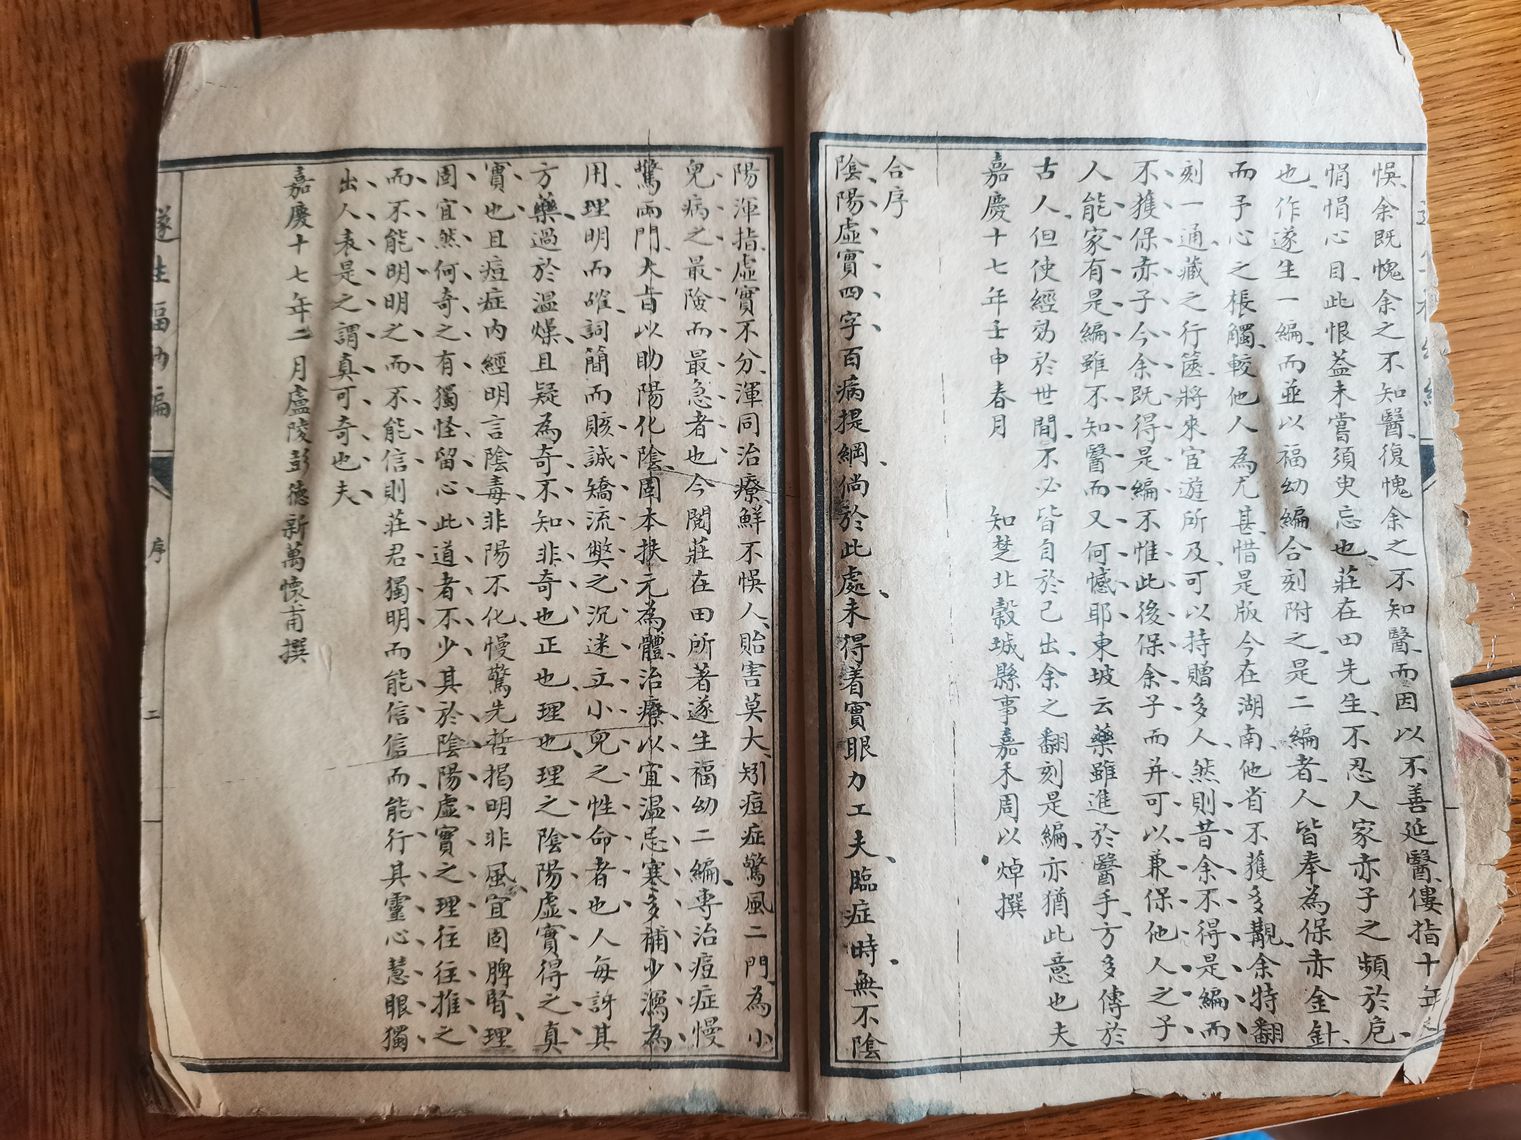 悞余既愧余之不知醫復愧余之不知醫而因以不善延醫僂指十年之
悁悁心目此恨葢未嘗須臾忘也莊在田先生不忍人家赤子之頻於危
也作遂生一編而並以福幼編合刻附之是二編者人皆奉為保赤金針
而予心之棖觸較他人為尤甚惜是版今在湖南他省不獲多覯余特翻
刻一通藏之行篋將來宦遊所及可以持贈多人然則昔余不得是編而
不獲保赤子今余既得是編不惟此後保余子而并可以兼保他人之子
人能家有是編雖不知醫而又何憾耶東坡云藥雖進於醫手方多傳於
古人但使經効於世間不必皆自於己出余之翻刻是編亦猶此意也夫
嘉慶十七年壬申春月 知楚北穀城縣事嘉禾周以焯撰
合序
陰陽虛實四字百病提綱倘於此處未得着實眼力工夫臨症時無不陰
陽渾指虛實不分渾同治療鮮不悞人貽害莫大矧痘症驚風二門為小
兒病之最險而最急者也今閱莊在田所著遂生福幼二編專治痘症慢
驚兩門大旨以助陽化陰固本扶元為體治療以宜温忌寒多補少瀉為
用理明而確詞簡而賅誠矯流獘之沉迷立小兒之性命者也人每訝其
方藥過於温燥且疑為奇不知非奇也正也理也理之陰陽虛實得之真
實也且痘症内經明言陰毒非陽不化慢驚先哲揭明非風宜固脾腎理
固宜然何奇之有獨怪留心此道者不少其於陰陽虛實之理往往推之
而不能明明之而不能信則莊君獨明而能信信而能行其靈心慧眼獨
出人表是之謂真可奇也夫
嘉慶十七年二月盧陵彭德新萬懷甫撰
遂生福幼編
序
二